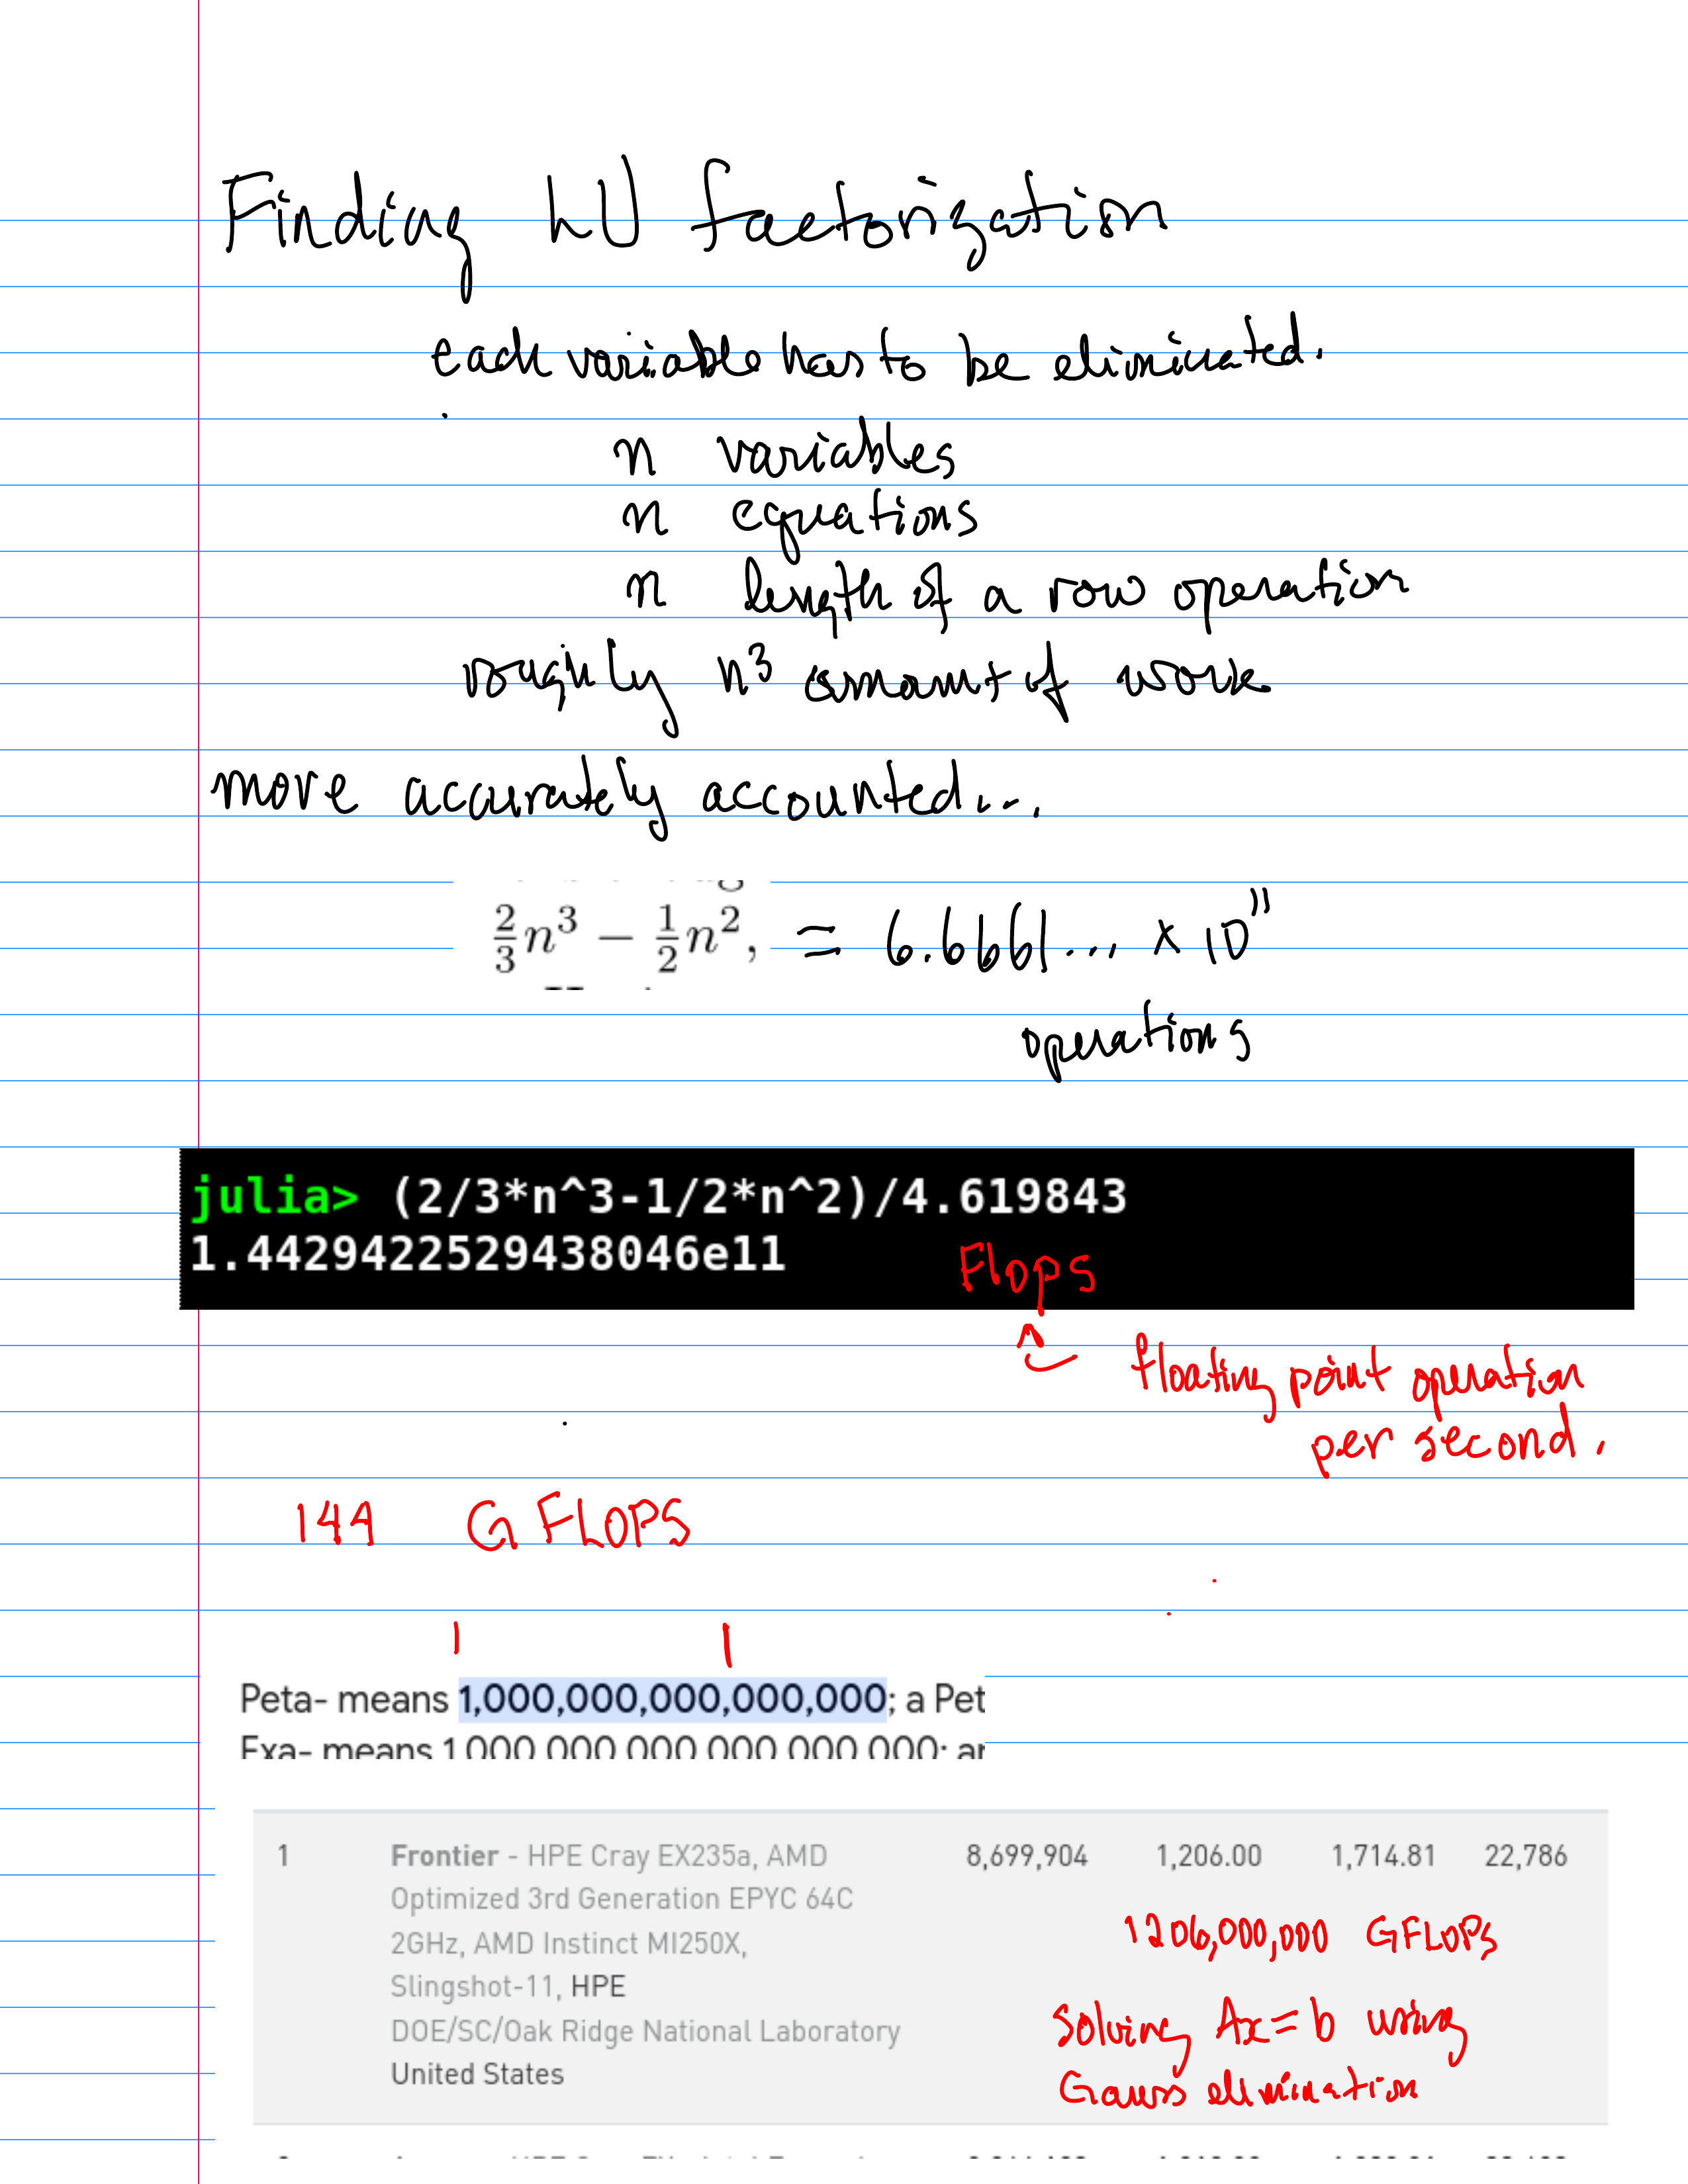 Finding LU factorization
each variable has to be eliminated.
n variables
n equations
n length of a row operation
roughly n³ amount of work
more accurately accounted...
2/3 n³ − 1/2 n², = 6.6661... × 10¹¹
operations
julia> (2/3*n^3-1/2*n^2)/4.619843
1.4429422529438046e11
Flops
floating point operation
per second.
144 GFLOPS
Peta- means 1,000,000,000,000,000; a Pet
Exa- means 1,000,000,000,000,000,000; an
1 Frontier - HPE Cray EX235a, AMD 8,699,904 1,206.00 1,714.81 22,786
Optimized 3rd Generation EPYC 64C
2GHz, AMD Instinct MI250X,
Slingshot-11, HPE
DOE/SC/Oak Ridge National Laboratory
United States
1206,000,000 GFLOPS
Solving Ax=b using
Gauss elimination